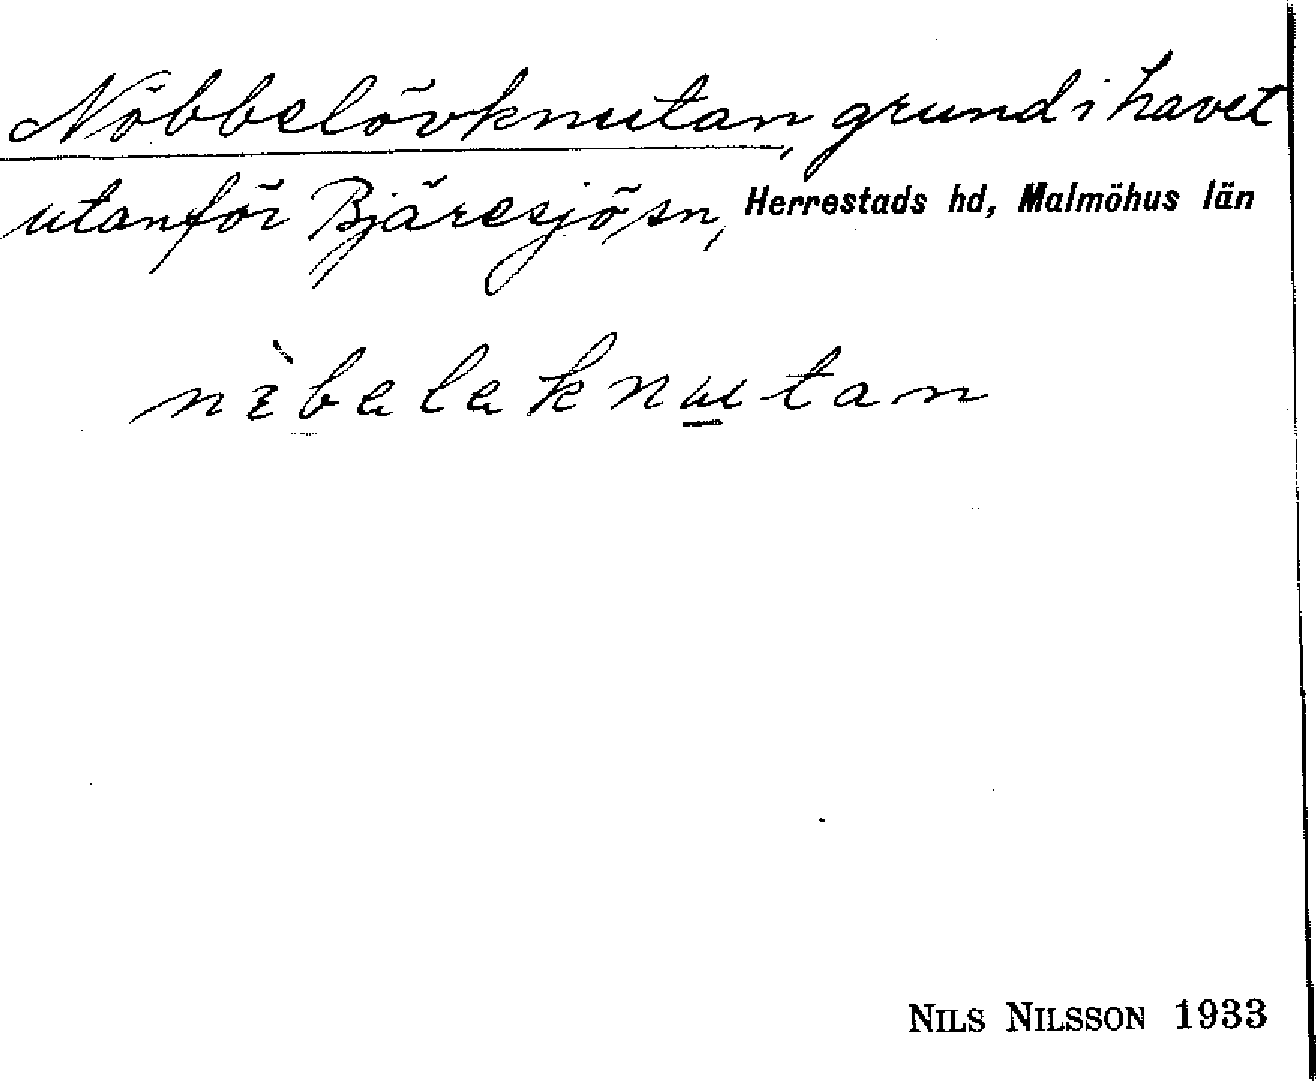 Nöbbelövknutan, grund i havet
utanför Bjäresjö sn, Herrestads hd, Malmöhus län
nὲbalaknutan
NILS NILSSON 1933